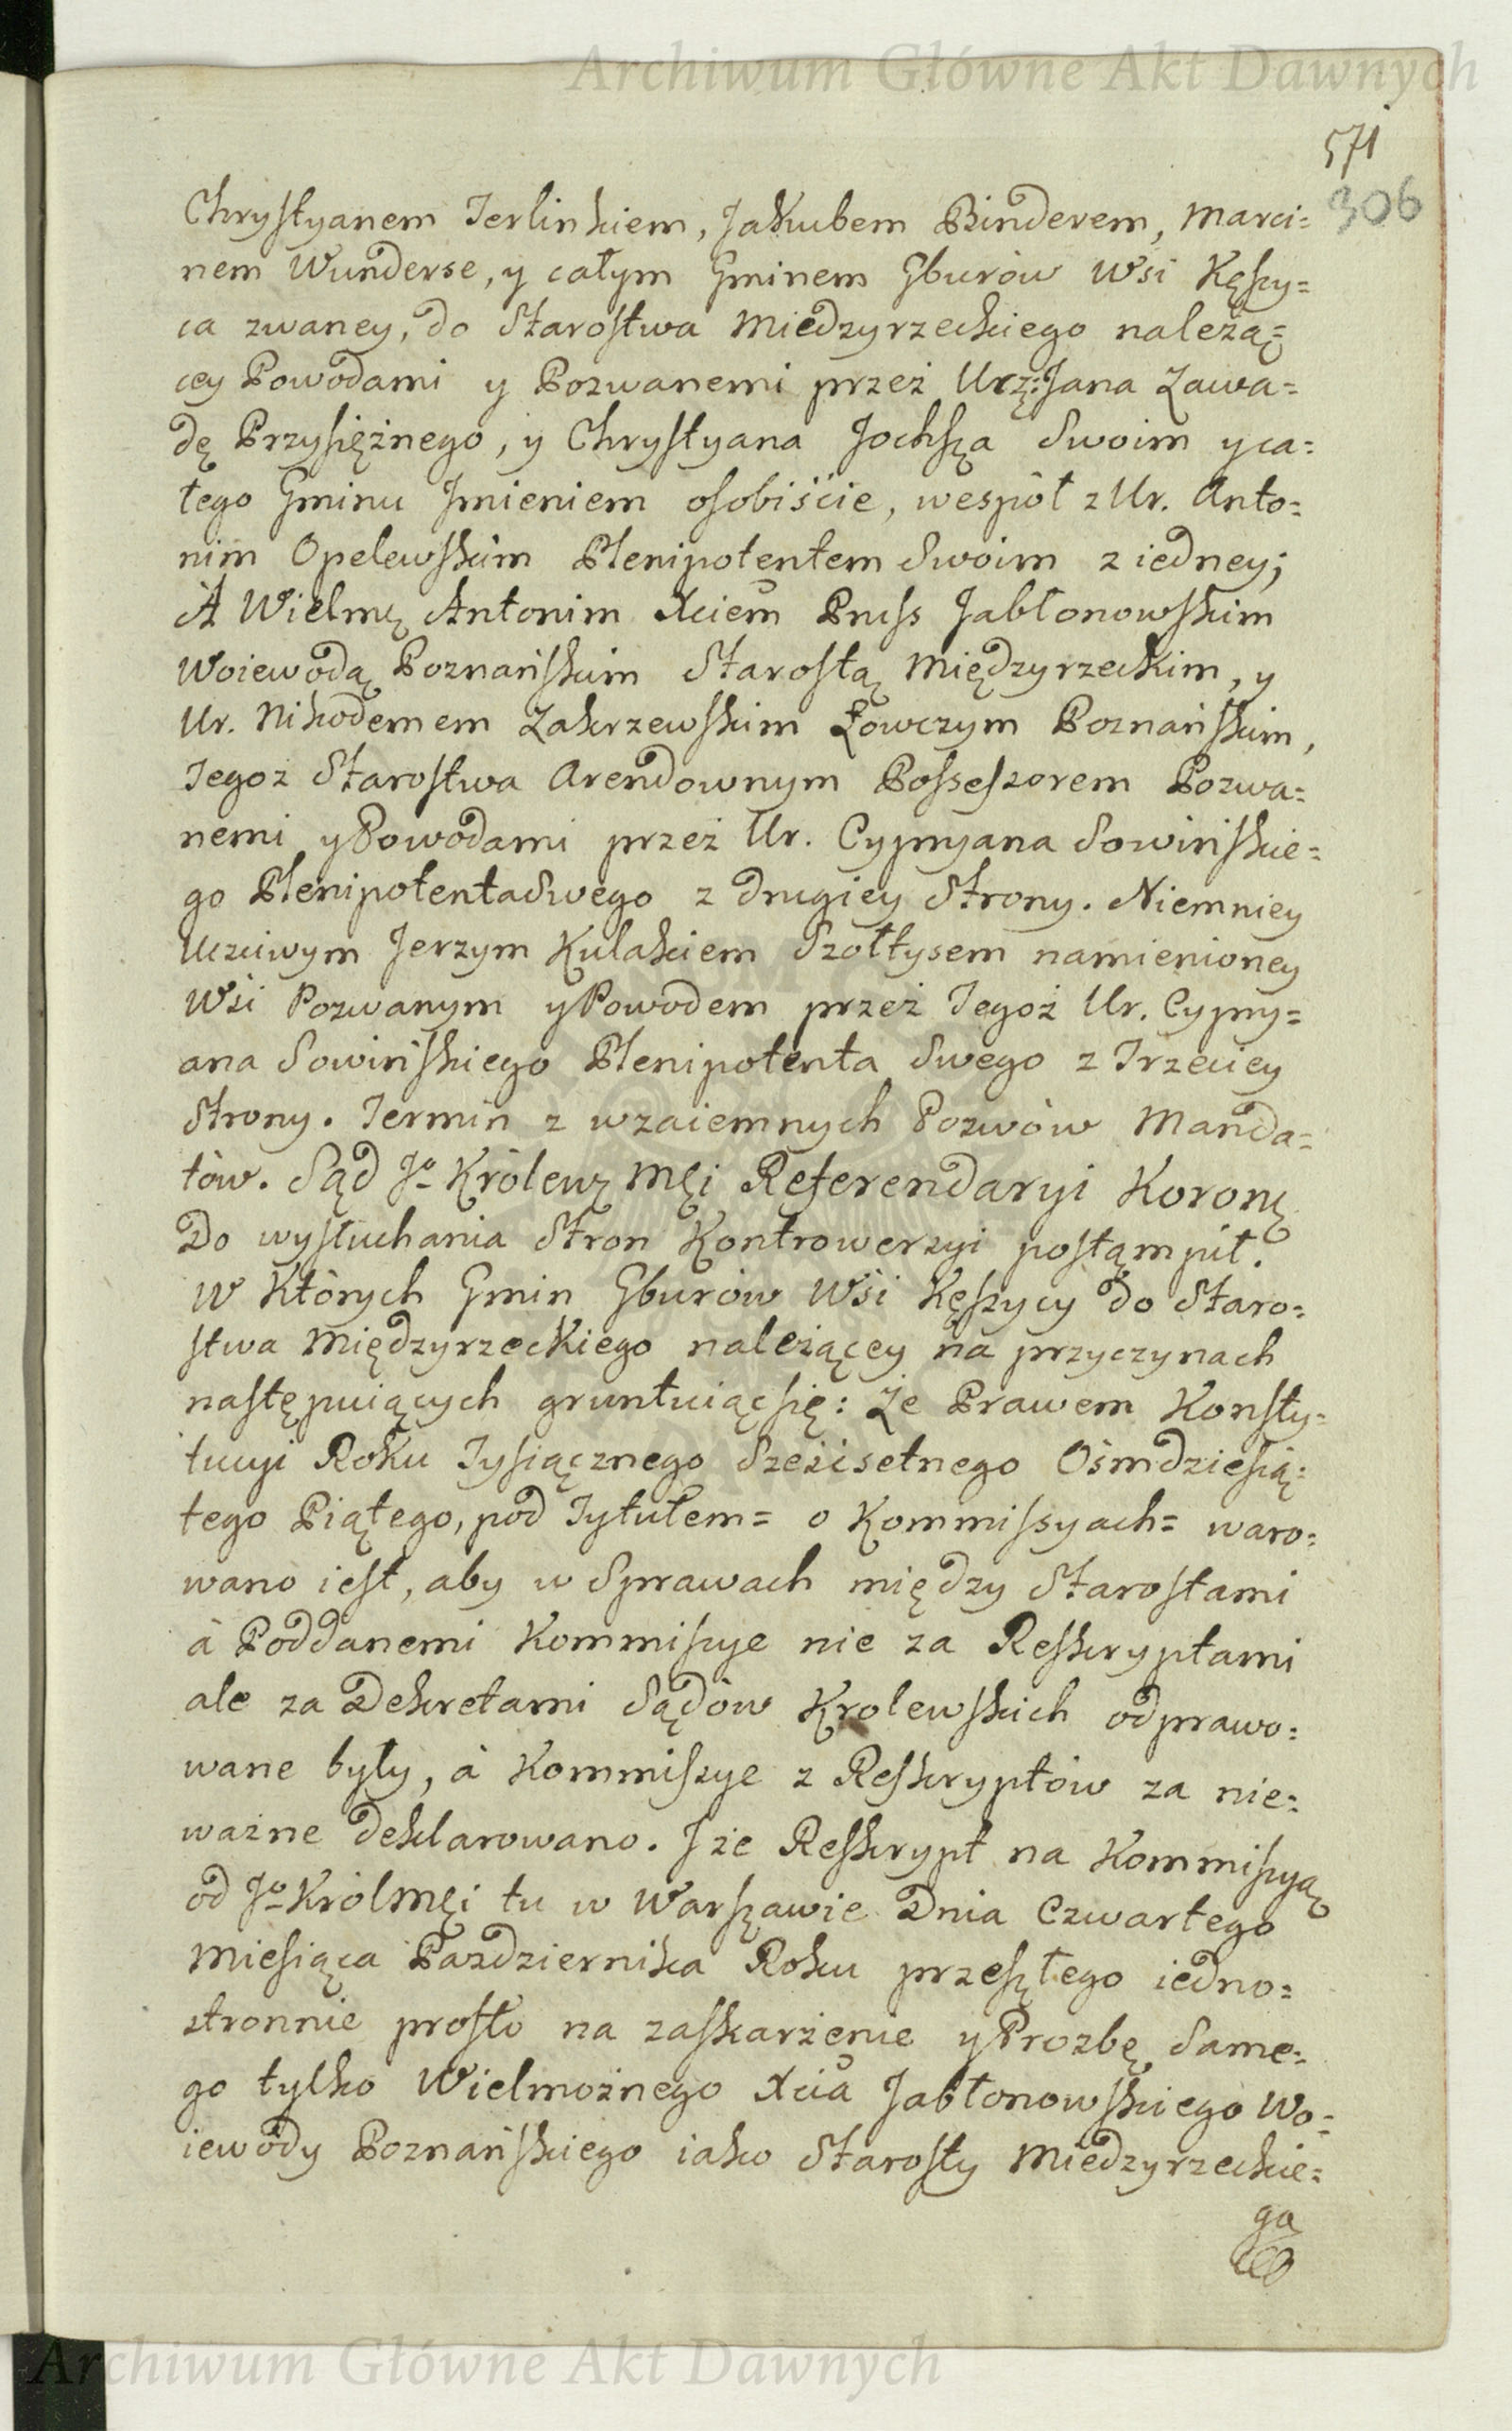 Archiwum Główne Akt Dawnych
571
306
Chrystyanem Terlinkiem, Jakubem Binderem, Marci=
nem Wunderse, y całym Gminem Gburów Wsi Kęszy=
ca zwaney, do Starostwa Międzyrzeckiego należą=
cey Powodami y Pozwanemi przez Urz: Jana Zawa=
dę Przysiężnego, y Chrystyana Jochsza Swoim y ca=
łego Gminu Jmieniem osobiście, wespół z Ur. Anto=
nim Opelewskim Plenipotentem Swoim z iedney;
A Wielmę Antonim Xciem Pruss Jabłonowskim
Woiewodą Poznańskim Starostą Międzyrzeckim, y
Ur. Nikodemem Zakrzewskim Łowczym Poznańskim,
Tegoż Starostwa Arendownym Possessorem Pozwa=
nemi y Powodami przez Ur. Cypryana Sowińskie=
go Plenipotenta Swego z drugiey Strony. Niemniey
Uczciwym Jerzym Kulakiem Szołtysem namienioney
Wsi Pozwanym y Powodem przez Tegoż Ur. Cypry=
ana Sowińskiego Plenipotenta Swego z Trzeciey
Strony. Termin z wzaiemnych Pozwów Manda=
tów. Sąd Jo Królewę Męi Referendaryi Koronę
Do wysłuchania Stron Kontrowersyi postąmpił.
W Których Gmin Gburów Wsi Kęszycy do Staro=
stwa Międzyrzeckiego należącey na przyczynach
następuiących gruntuiąc się: Że Prawem Konsty=
tucyi Roku Tysiącznego Sześćsetnego Ośmdziesią=
tego Piątego, pod Tytułem= o Kommissyach= waro=
wano iest, aby w Sprawach między Starostami
à Poddanemi Kommissye nie za Reskryptami
ale za Dekretami Sądów Krolewskich odprawo=
wane były, à Kommissye z Reskryptów za nie=
ważne deklarowano. J że Reskrypt na Kommissyą
od Jo Królmęi tu w Warszawie Dnia Czwartego
Miesiąca Pazdziernika Roku przeszłego iedno=
stronnie prosto na zaskarżenie y Prozbę Same=
go tylko Wielmożnego Xcia Jabłonowskiego Wo=
iewody Poznańskiego iako Starosty Międzyrzeckie=
go
Archiwum Główne Akt Dawnych